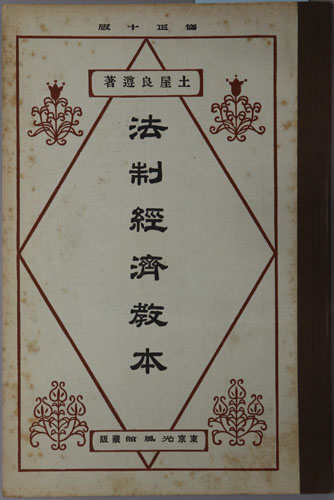 修正十版
土屋良遵著
法制經濟教本
東京光風館藏版